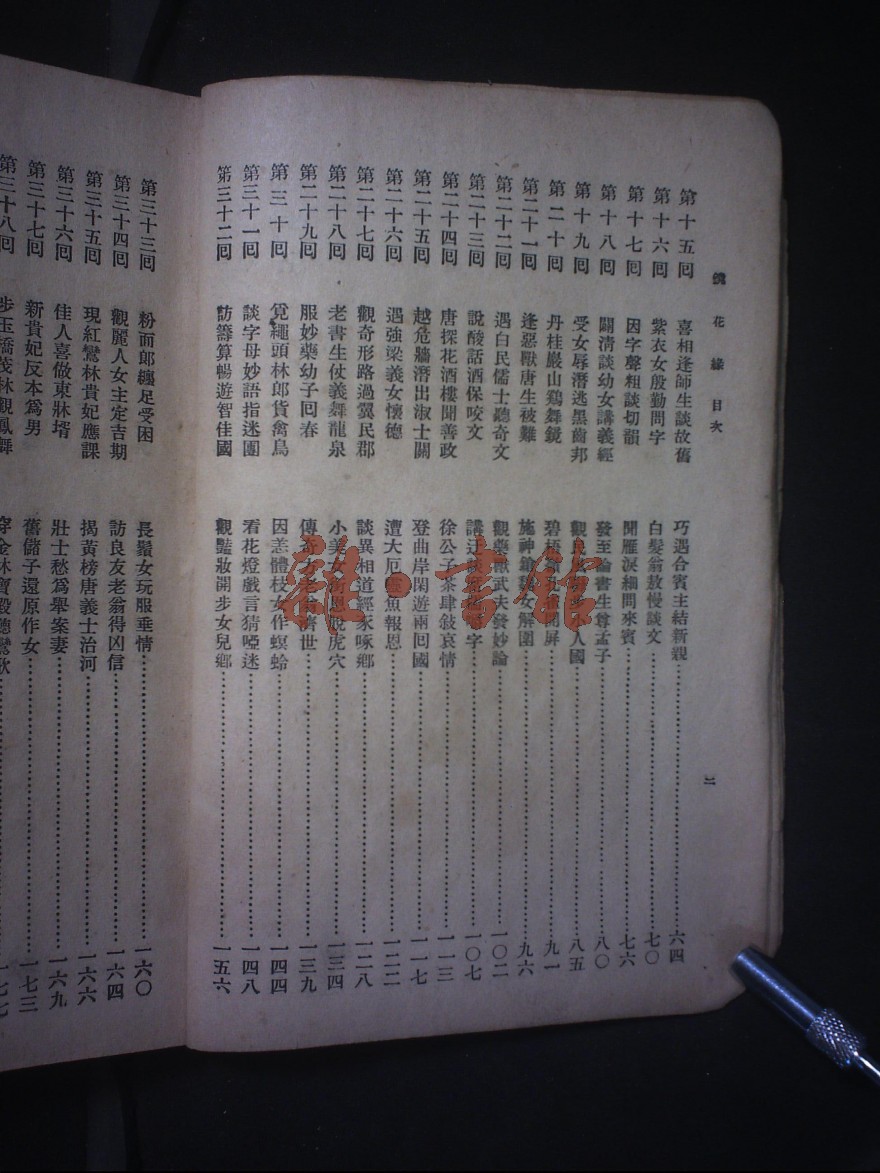 鏡花緣 目次
二
第十五回 喜相逢師生談故舊 巧遇合賓主結新親 六四
第十六回 紫衣女殷勤問字 白髮翁敖慢談文 七〇
第十七回 因字聲粗談切韻 聞雁淚細問來賓 七六
第十八回 闢清談幼女講義經 發至論書生尊孟子 八〇
第十九回 受女辱潛逃黑齒邦 觀民 小人國 八五
第二十回 丹桂巖山鷄舞鏡 碧梧 孔 開屏 九一
第二十一回 逢惡獸唐生被難 施神鎗 女解圍 九六
第二十二回 遇白民儒士聽奇文 觀藥獸武夫發妙論 一〇二
第二十三回 說酸話酒保咬文 講迂談 字 一〇七
第二十四回 唐探花酒樓聞善政 徐公子茶肆敍哀情 一一三
第二十五回 越危牆潛出淑士關 登曲岸閑遊兩囘國 一一七
第二十六回 遇強梁義女懷德 遭大厄靈魚報恩 一二二
第二十七回 觀奇形路過翼民郡 談異相道經豕啄鄉 一二八
第二十八回 老書生仗義舞龍泉 小美女 恩脫虎穴 一三四
第二十九回 服妙藥幼子回春 傳奇方 濟世 一三九
第三十回 覓蠅頭林郎貨禽鳥 因恙體枝女作螟蛉 一四四
第三十一回 談字母妙語指迷團 看花燈戲言猜啞迷 一四八
第三十二回 訪籌算暢遊智佳國 觀豔妝閒步女兒鄉 一五六
第三十三回 粉面郎纏足受困 長鬚女玩服垂情 一六〇
第三十四回 觀麗人女主定吉期 訪良友老翁得凶信 一六四
第三十五回 現紅鸞林貴妃應課 揭黃榜唐義士治河 一六六
第三十六回 佳人喜做東牀壻 壯士愁爲舉案妻 一六九
第三十七回 新貴妃反本爲男 舊儲子還原作女 一七三
第三十八回 步玉橋茂林觀鳳舞 穿金林寶殿聽鸞歌 一七七
雜·書館